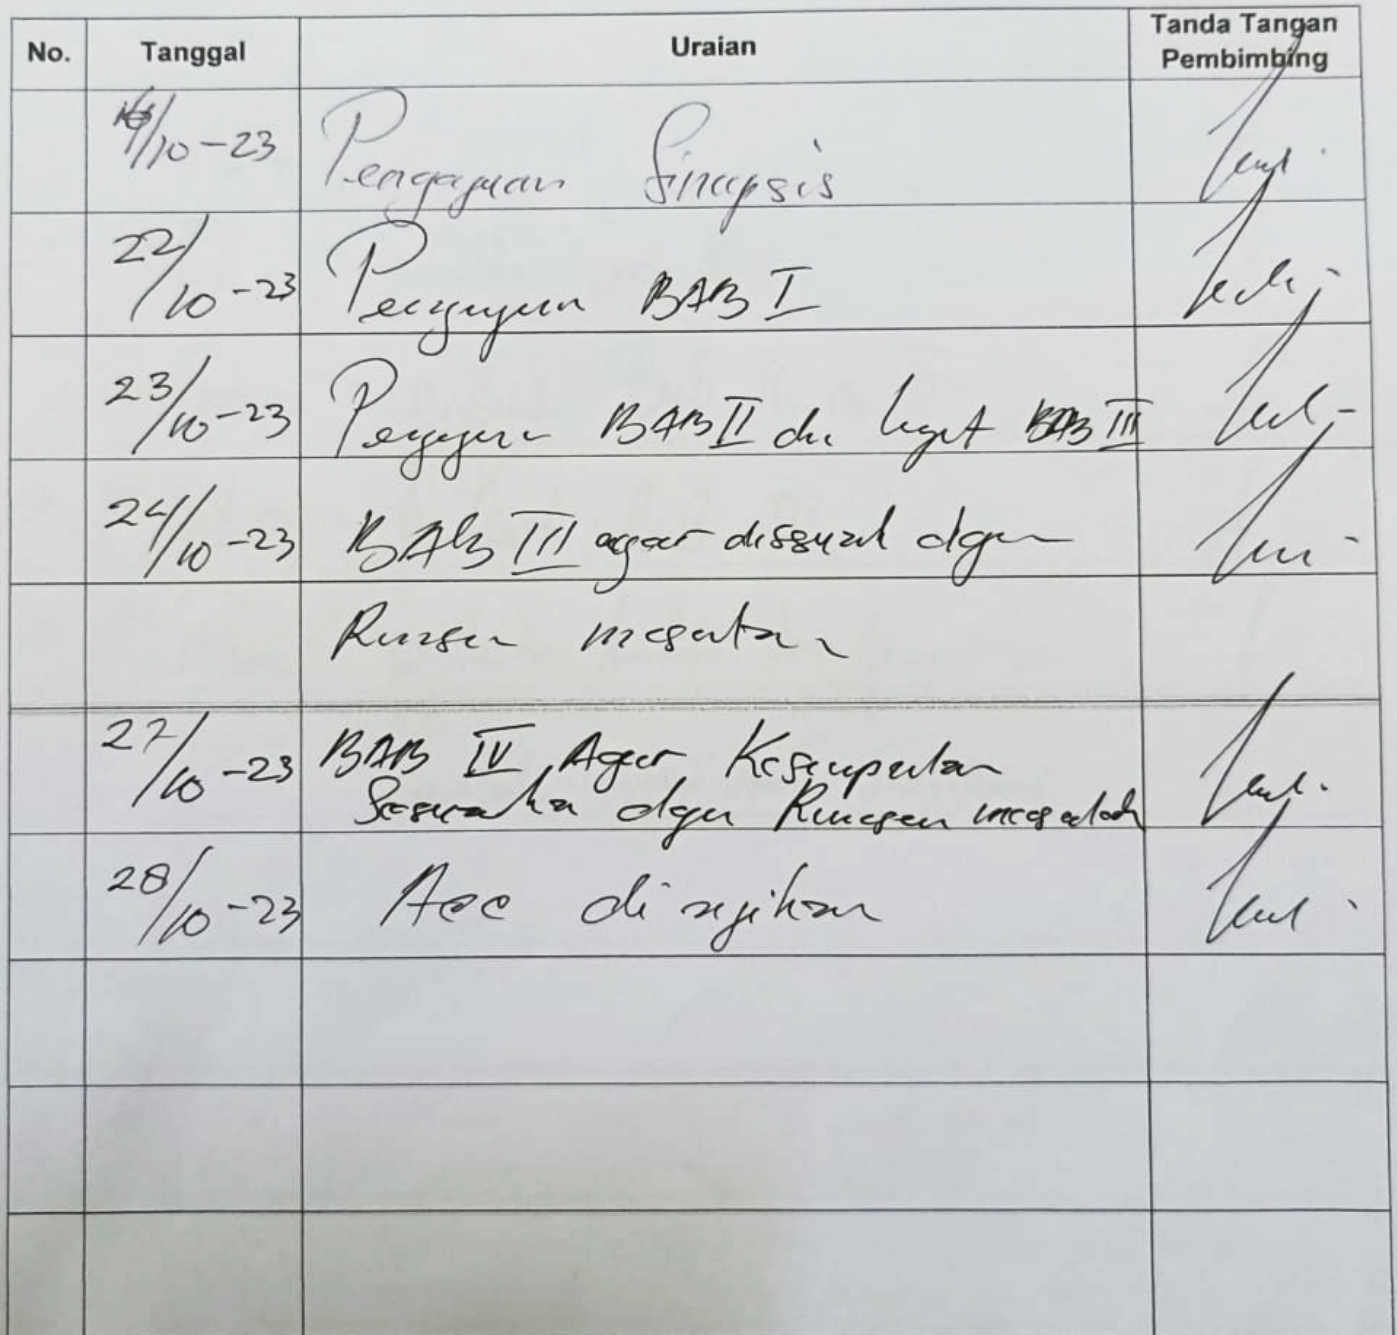 No. Tanggal Uraian Tanda Tangan Pembimbing
/10-23 Pengajuan Sinopsis
22/10-23 Pengajuan BAB I
23/10-23 Pengajuan BAB II dn BAB III
24/10-23 BAB III agar disesuai dgn
Rumusan masalah
27/10-23 BAB IV Agar Kesimpulan
dgn Rumusan masalah
28/10-23 Acc di ujikan